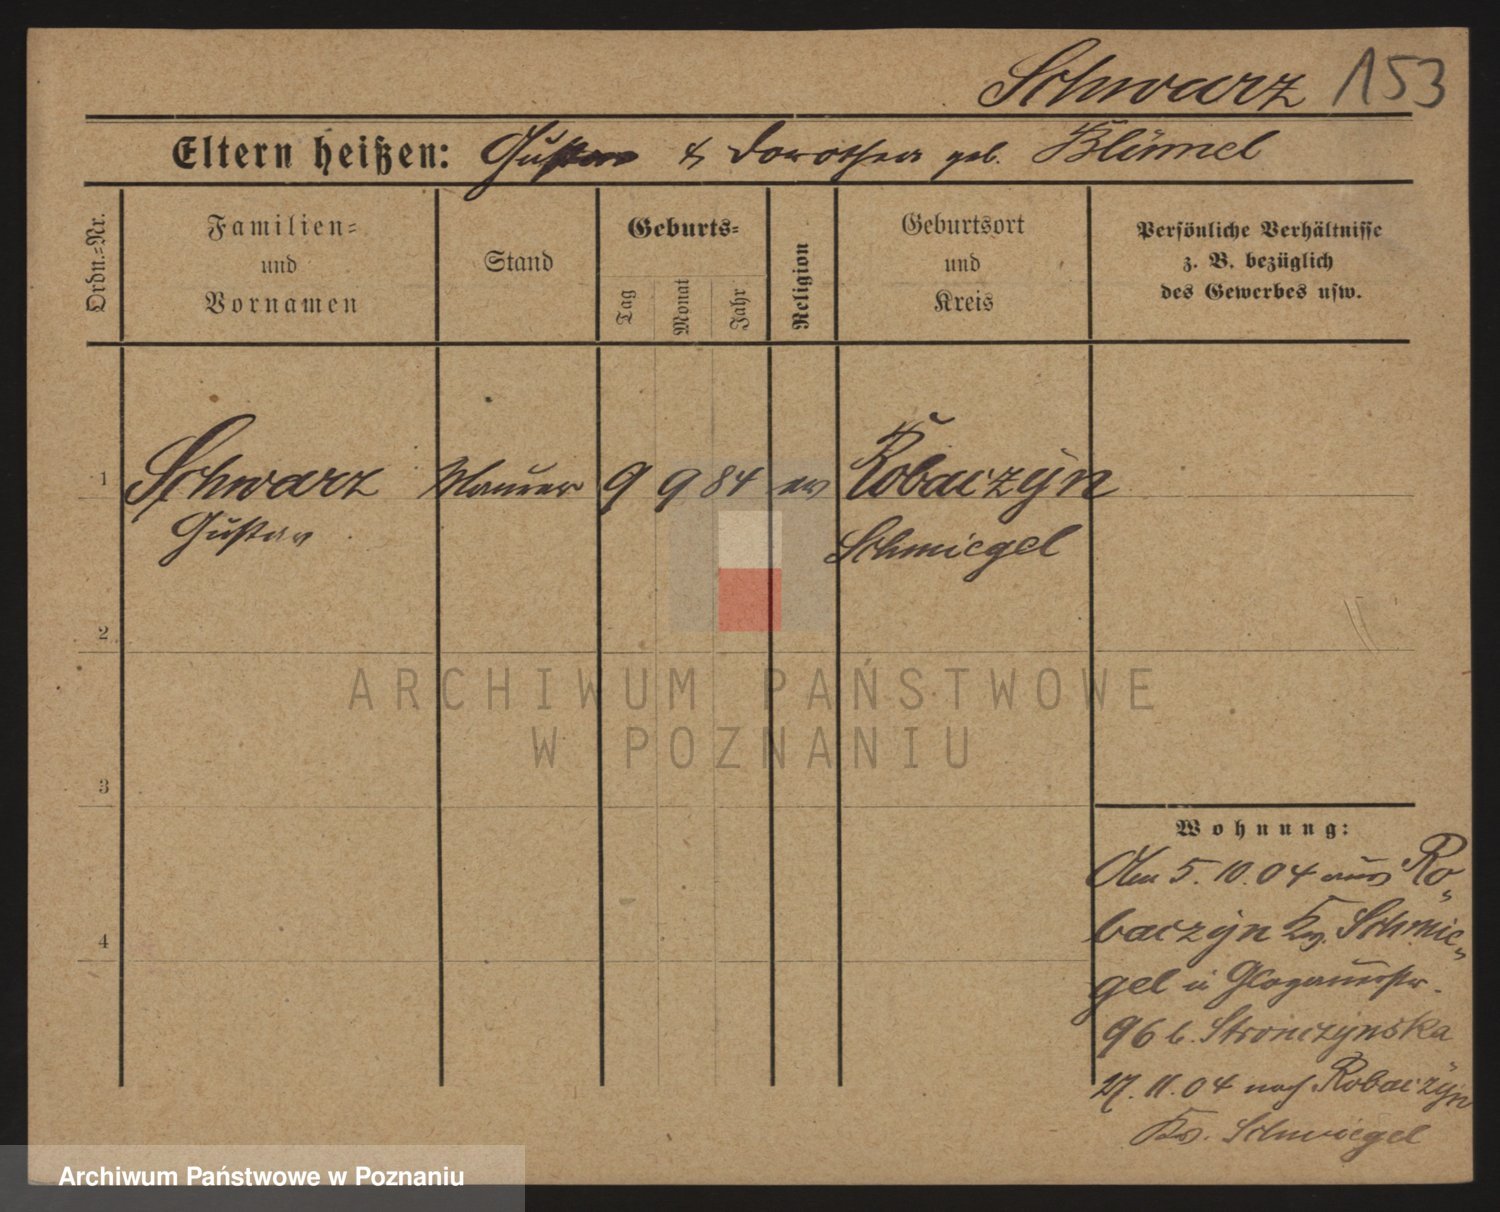 Schwarz 153
Eltern heißen: Gustav & Dorothea geb. Blümel
Ordn.=Nr.
Familien=
und
Vornamen
Stand
Geburts=
Tag
Monat
Jahr
Religion
Geburtsort
und
Kreis
Persönliche Verhältnisse
z. B. bezüglich
des Gewerbes usw.
1 Schwarz Maurer 9 9 84 ev Robaczyn
Gustav Schmiegel
2
ARCHIWUM PAŃSTWOWE
W POZNANIU
3
Wohnung:
Am 5. 10. 04 aus Ro-
baczyn Kr. Schmie-
4
gel in Glogauerstr.
96 b. Stronczynska
27. 11. 04 nach Robaczyn
Kr. Schmiegel
Archiwum Państwowe w Poznaniu